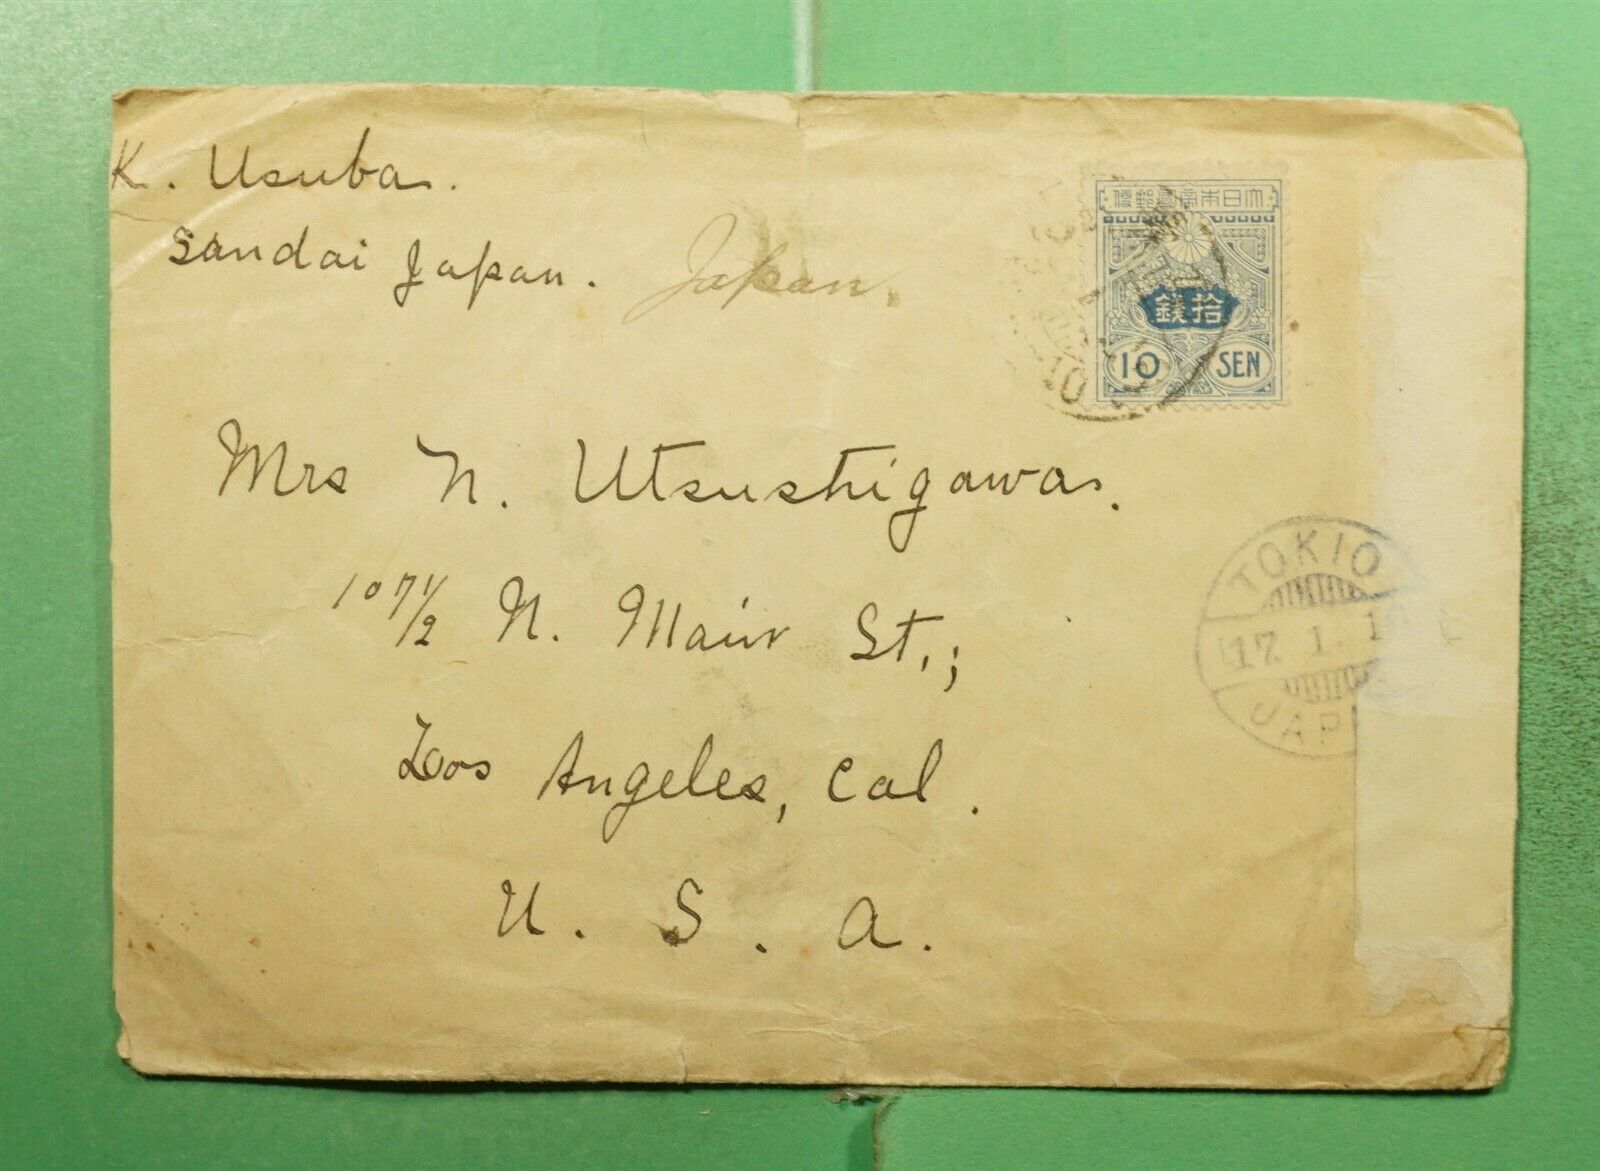 K. Usuba.
Sandai Japan. Japan.
大日本帝國郵便
拾錢
10 SEN
Mrs N. Utsushigawa.
107 1/2 N. Main St.;
Los Angeles, Cal.
U. S. A.
TOKIO
17. 1. 1
JAP